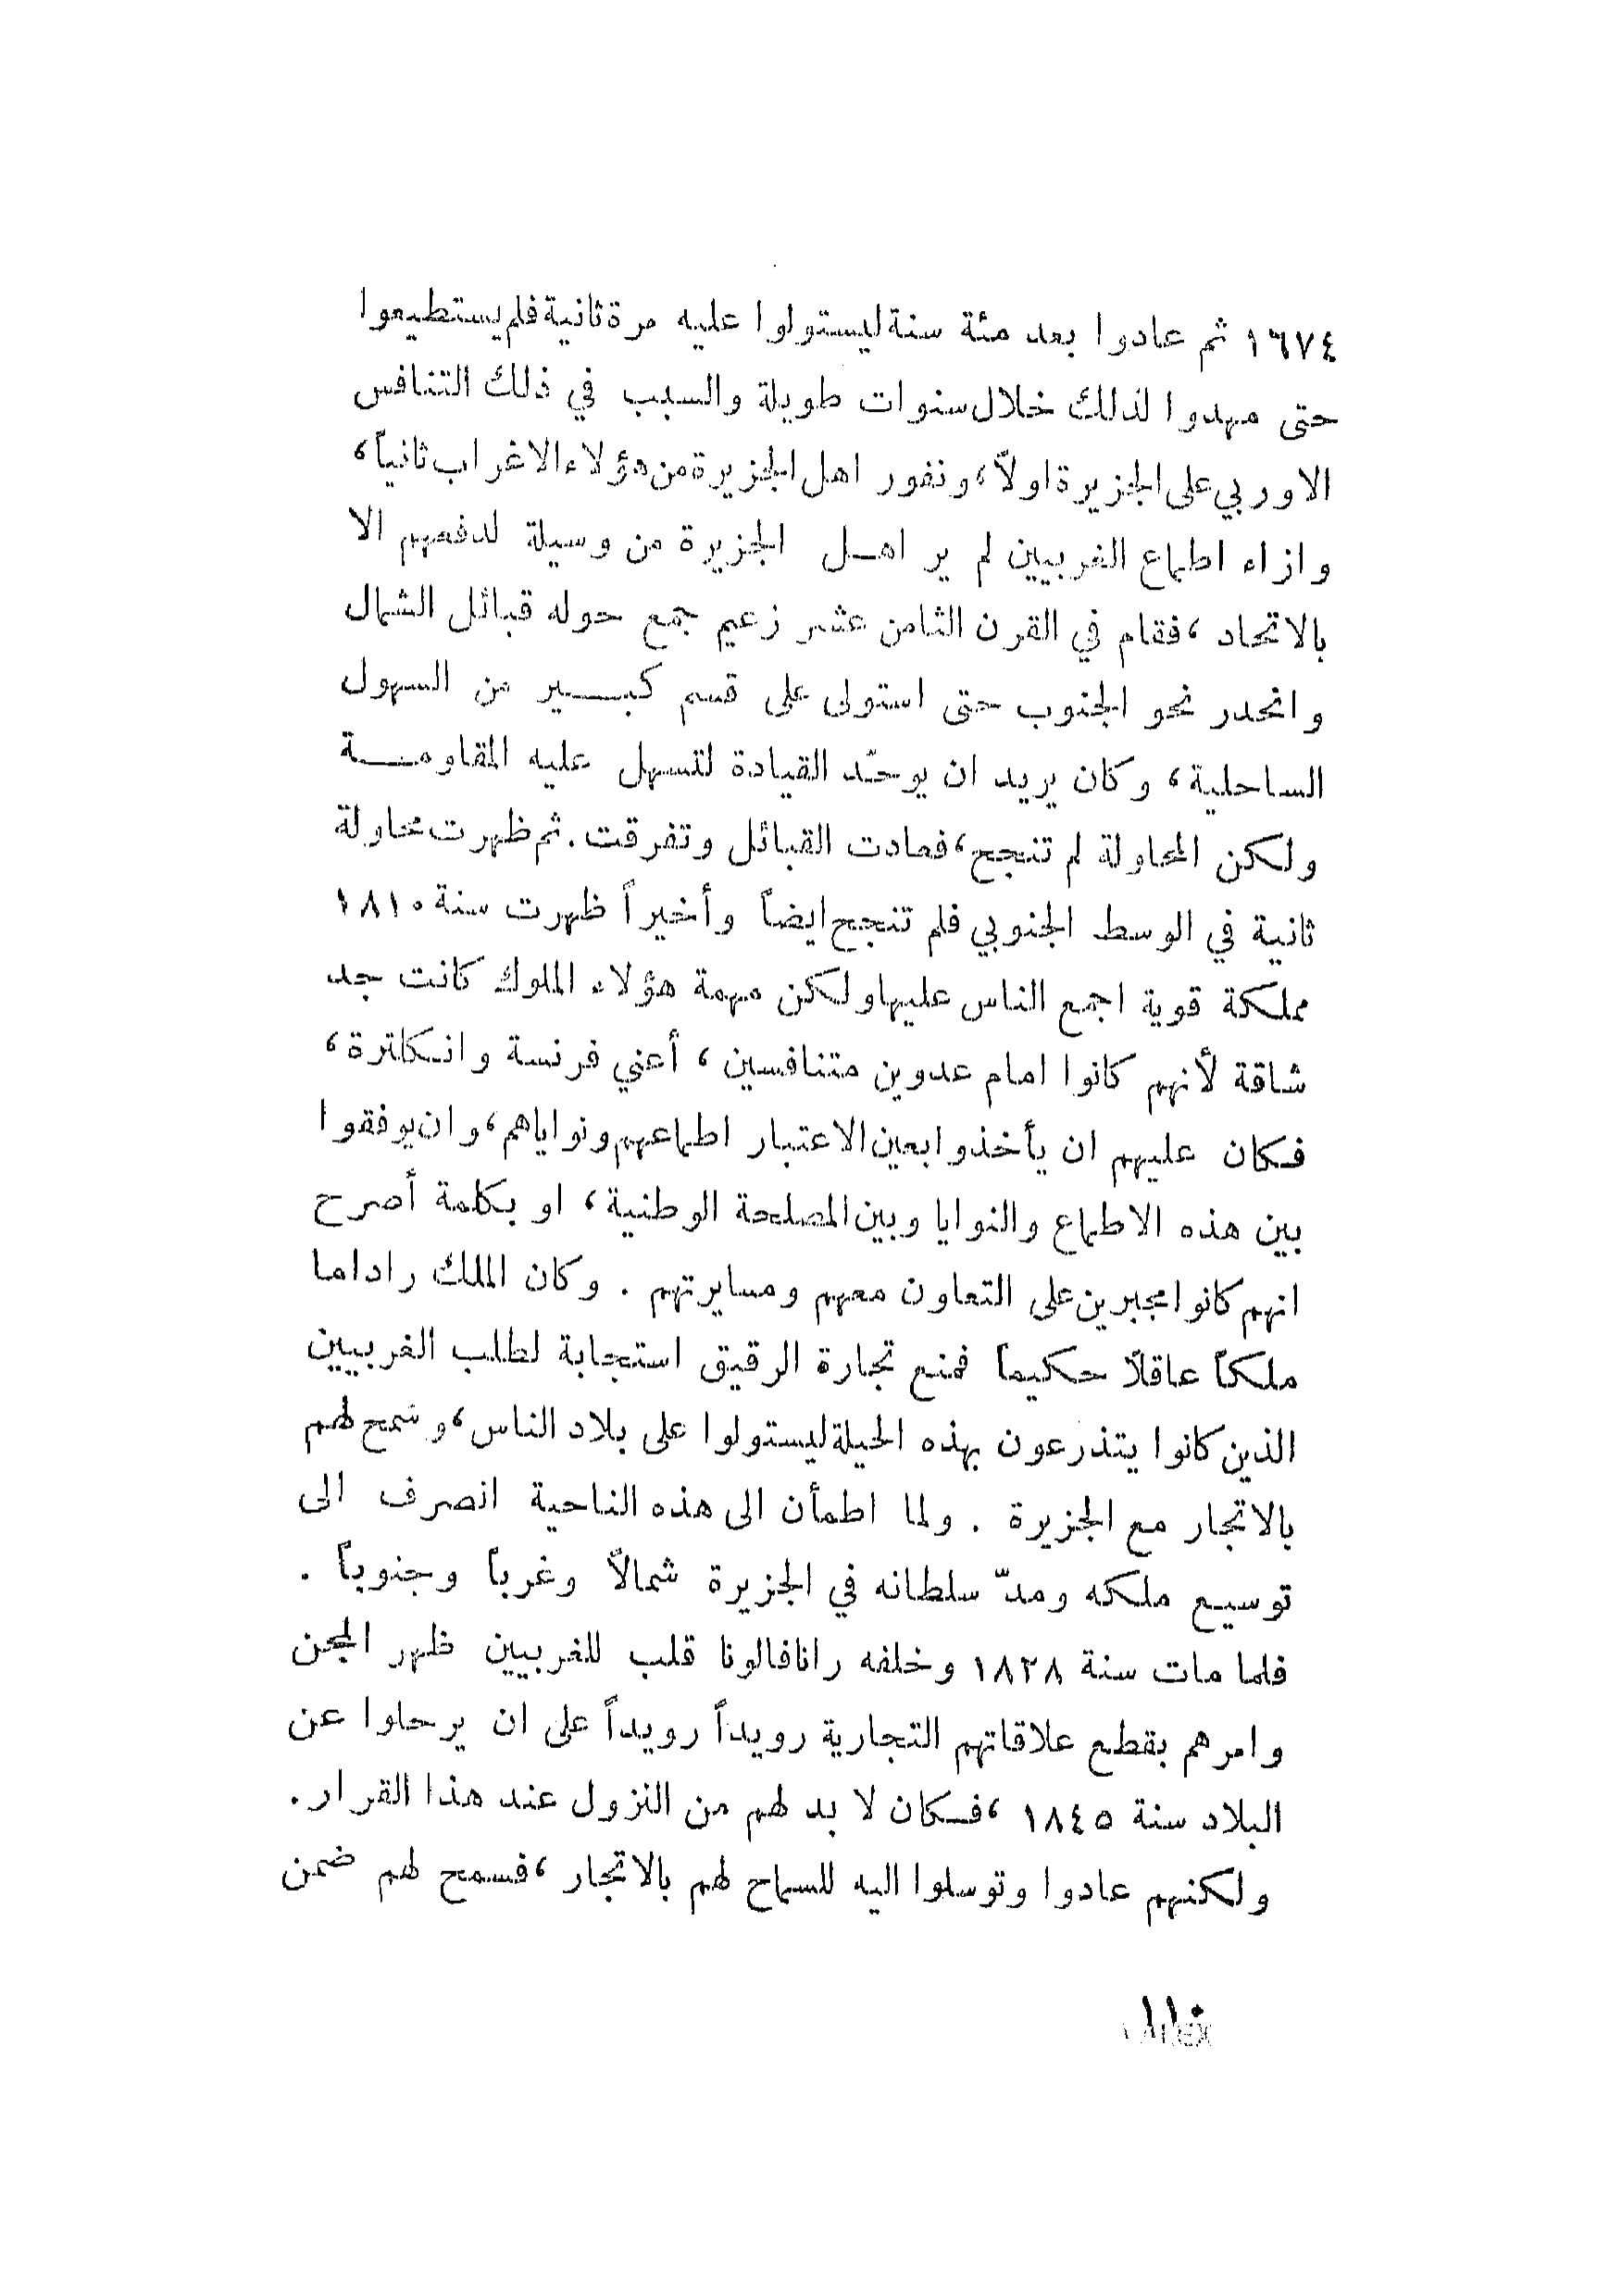 ١٦٧٤ ثم عادوا بعد مئة سنة ليستولوا عليه مرة ثانية فلم يستطيعوا
حتى مهدوا لذلك خلال سنوات طويلة والسبب في ذلك التنافس
الاوربي على الجزيرة اولاً، ونفور اهل الجزيرة من هؤلاء الاغراب ثانياً،
وازاء اطماع الغربيين لم ير اهل الجزيرة من وسيلة لدفعهم الا
بالاتحاد، فقام في القرن الثامن عشر زعيم جمع حوله قبائل الشمال
وانحدر نحو الجنوب حتى استولى على قسم كبير من السهول
الساحلية، وكان يريد ان يوحّد القيادة لتسهل عليه المقاومة
ولكن المحاولة لم تنجح، فعادت القبائل وتفرقت. ثم ظهرت محاولة
ثانية في الوسط الجنوبي فلم تنجح ايضاً وأخيراً ظهرت سنة ١٨١٠
مملكة قوية اجمع الناس عليها ولكن مهمة هؤلاء الملوك كانت جد
شاقة لأنهم كانوا امام عدوين متنافسين، أعني فرنسة وانكلترة،
فكان عليهم ان يأخذوا بعين الاعتبار اطماعهم ونواياهم، وان يوفقوا
بين هذه الاطماع والنوايا وبين المصلحة الوطنية، او بكلمة أصرح
انهم كانوا مجبرين على التعاون معهم ومسايرتهم . وكان الملك راداما
ملكاً عاقلاً حكيماً فمنع تجارة الرقيق استجابة لطلب الغربيين
الذين كانوا يتذرعون بهذه الحيلة ليستولوا على بلاد الناس، وسمح لهم
بالاتجار مع الجزيرة . ولما اطمأن الى هذه الناحية انصرف الى
توسيع ملكه ومدّ سلطانه في الجزيرة شمالاً وغرباً وجنوباً .
فلما مات سنة ١٨٢٨ وخلفه رانافالونا قلب للغربيين ظهر المجن
وامرهم بقطع علاقاتهم التجارية رويداً رويداً على ان يرحلوا عن
البلاد سنة ١٨٤٥ ، فكان لا بد لهم من النزول عند هذا القرار.
ولكنهم عادوا وتوسلوا اليه للسماح لهم بالاتجار ، فسمح لهم ضمن